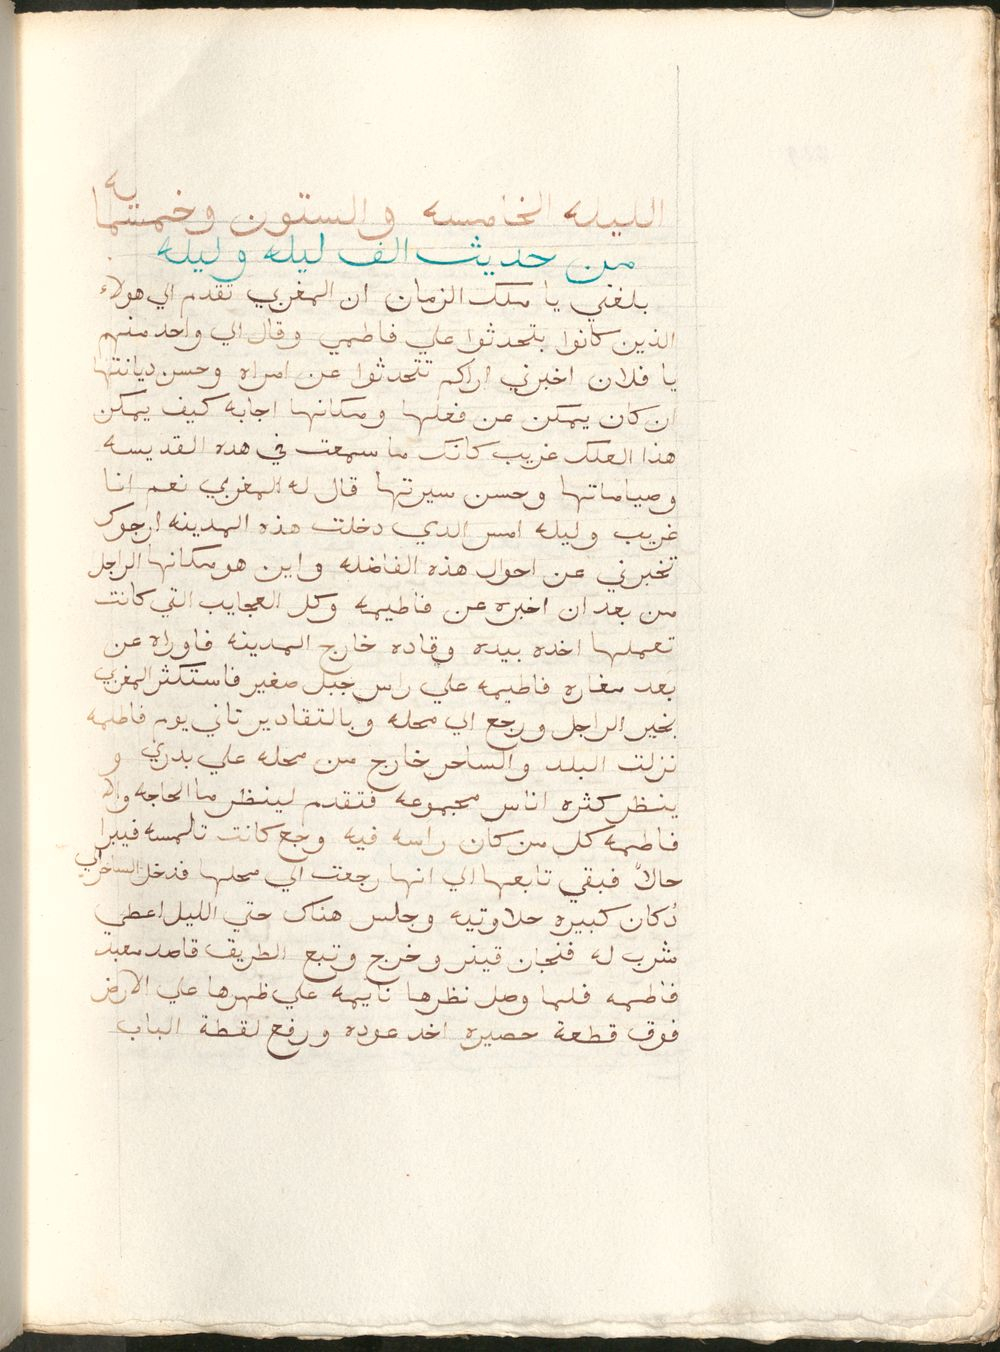 الليله الخامسه والستون وخمسمايه
من حديث الف ليله وليله
بلغني يا ملك الزمان ان المغربي تقدم الي هولاء
الذين كانوا بتحدثوا علي فاطمي وقال الي واحد منهم
يا فلان اخبرني اراكم تتحدثوا عن امراه وحسن ديانتها
ان كان يمكن عن فعلها ومكانها اجابه كيف يمكن
هذا العلك غريب كانك ما سمعت في هده القديسه
وصياماتها وحسن سيرتها قال له المغربي نعم انا
غريب وليله امس الدي دخلت هذه المدينه ارجوك
تخبرني عن احوال هذه الفاضله واين هو مكانها الراجل
من بعد ان اخبره عن فاطيمه وكل العجايب التي كانت
تعملها اخده بيده وقاده خارج المدينه فاوراه عن
بعد مغاره فاطيمه علي راس جبل صغير فاستكثر المغربي
بخير الراجل ورجع الي محله وبالتقادير تاني يوم فاطمه
نزلت البلد والساحر خارج من محله علي بدري و
ينظر كثره اناس مجموعه فتقدم لينظر ما الحاجه والا
فاطمه كل من كان راسه فيه وجع كانت تلمسه فيبرا
حالاً فبقي تابعها الي انها رجعت الي محلها فدخل الساحر الي
دُكان كبيره حلاوتيه وجلس هناك حتي الليل اعطي
شرب له فنجان قينر وخرج وتبع الطريق قاصد معبد
فاطمه فلما وصل نظرها نايمه علي ظهرها علي الارض
فوق قطعة حصيره اخد عوده ورفع لقطة الباب